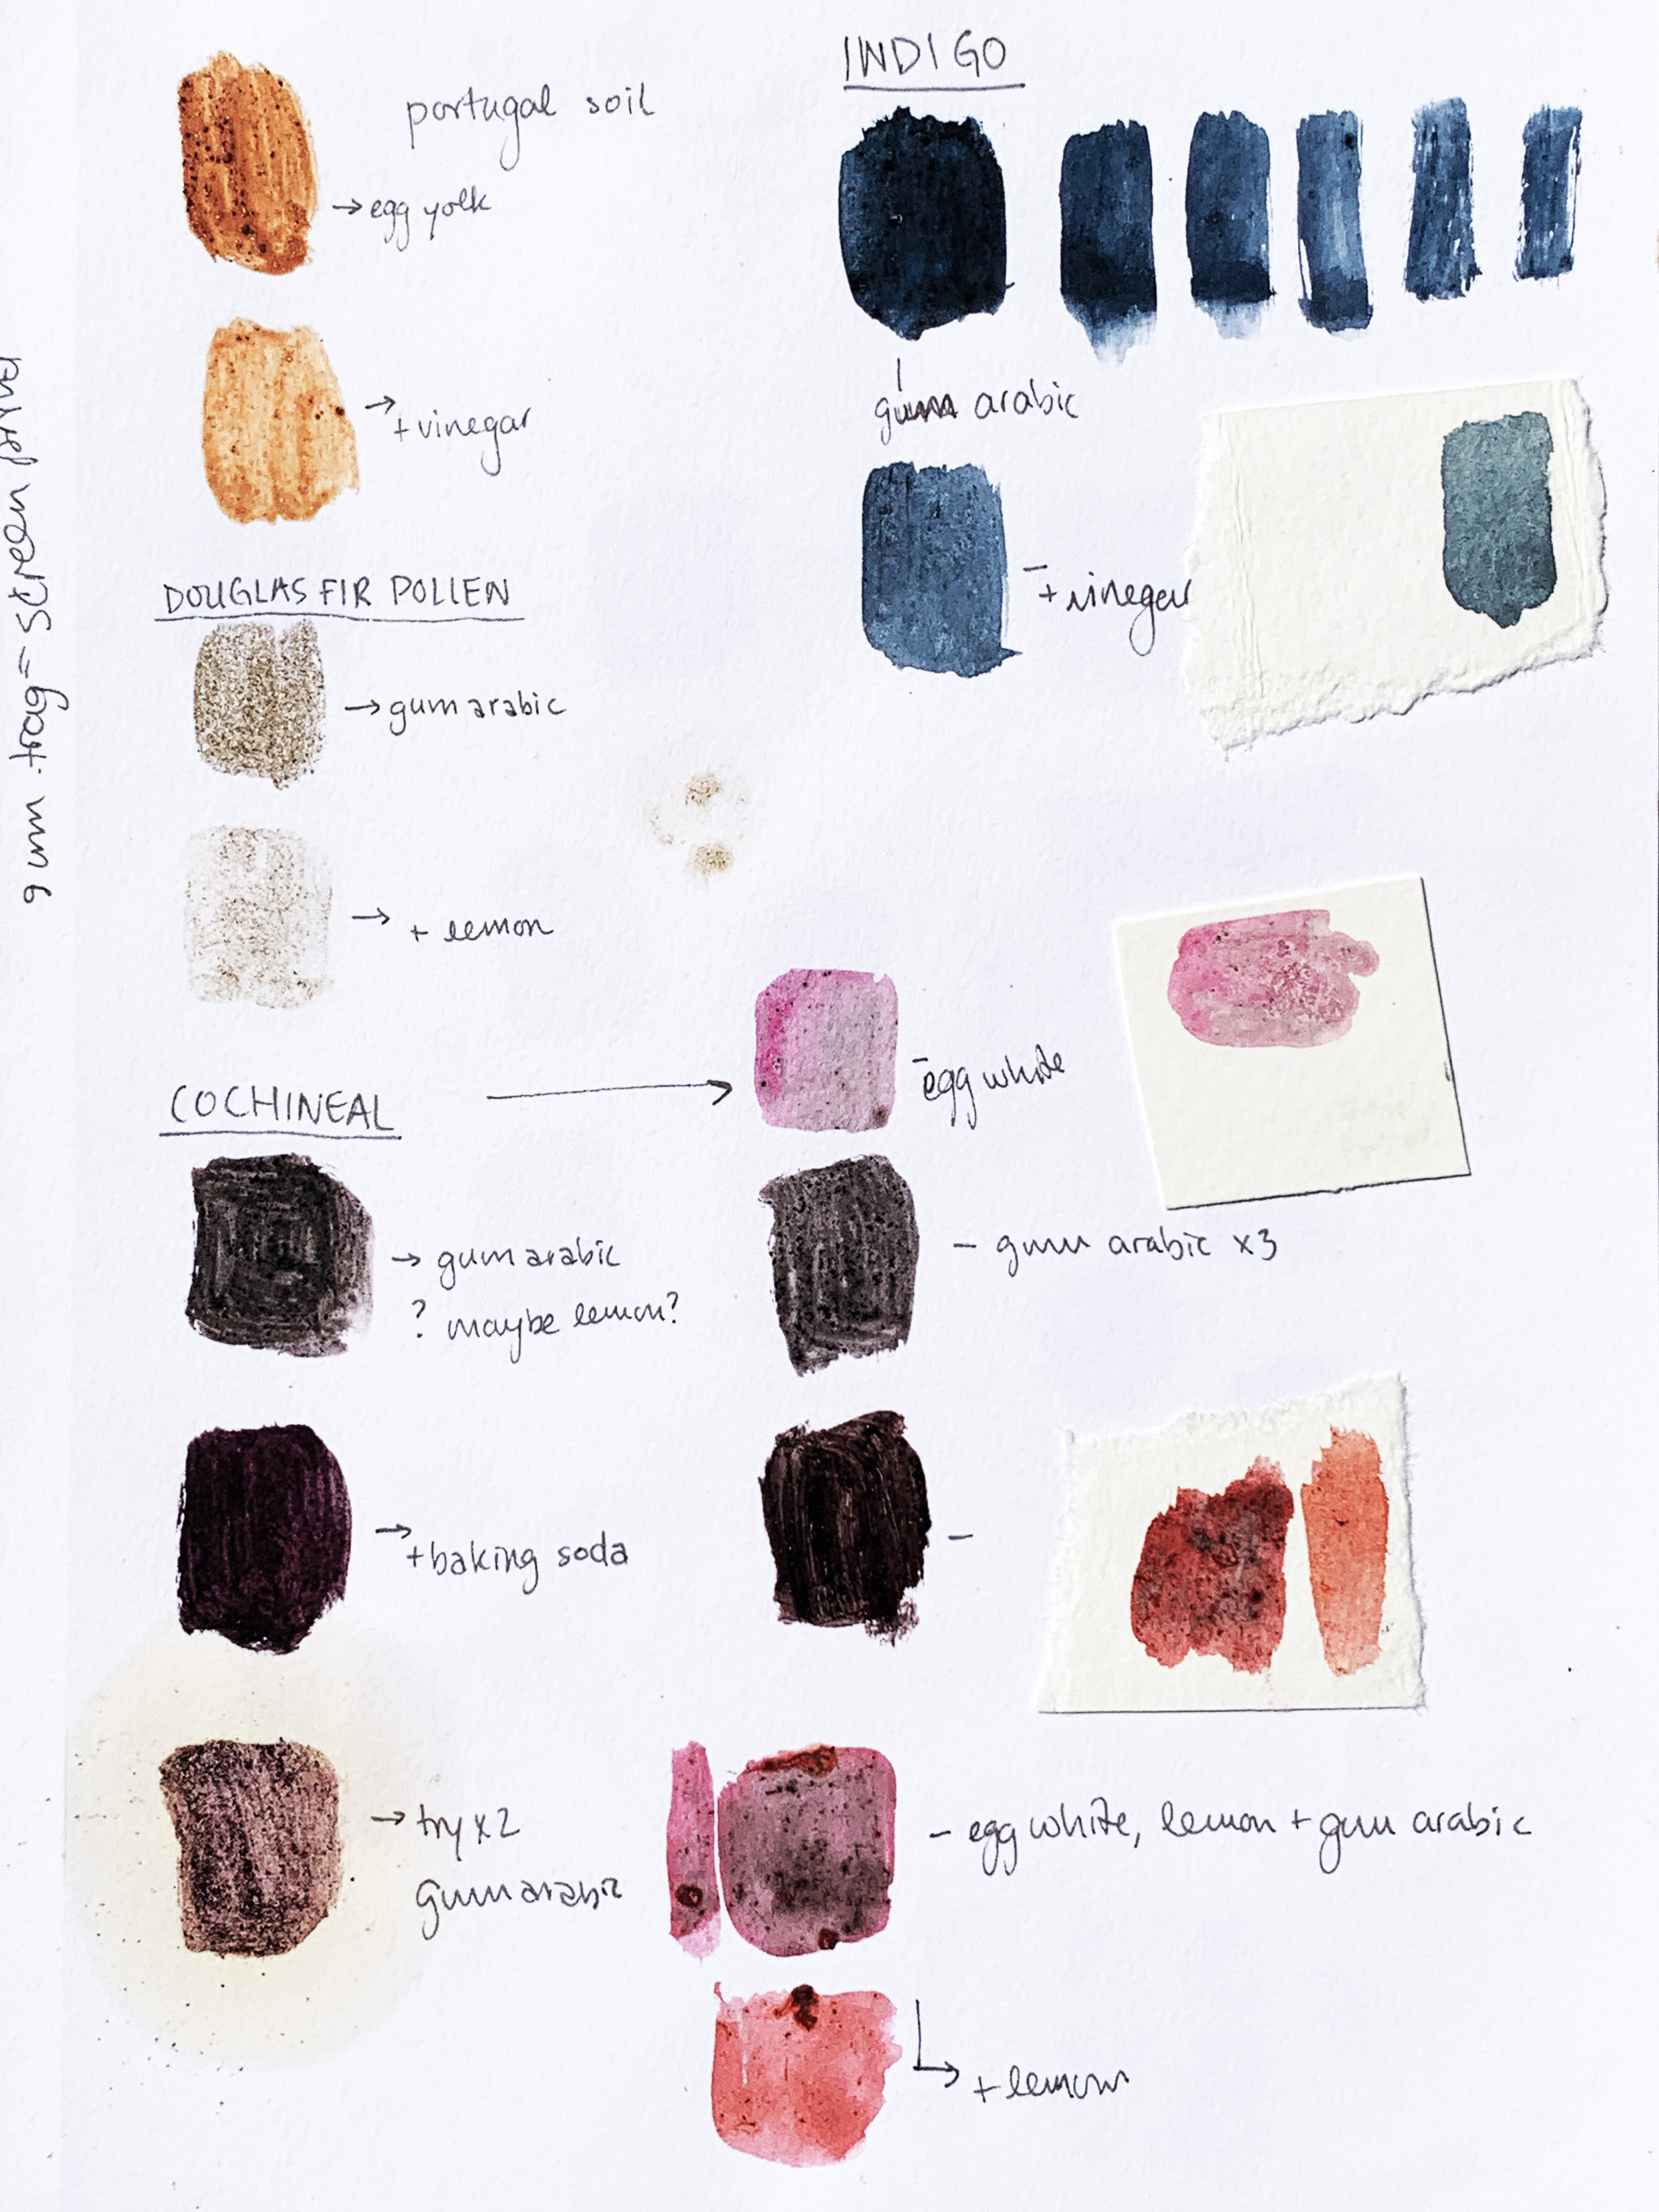 portugal soil
→ egg yolk
→ + vinegar
DOUGLAS FIR POLLEN
→ gum arabic
→ + lemon
COCHINEAL
→ gum arabic
? maybe lemon?
→ + baking soda
→ try x2
gum arabic
INDIGO
gum arabic
- + vinegar
- egg white
- gum arabic x3
-
- egg white, lemon + gum arabic
→ + lemon
gum trag = screen